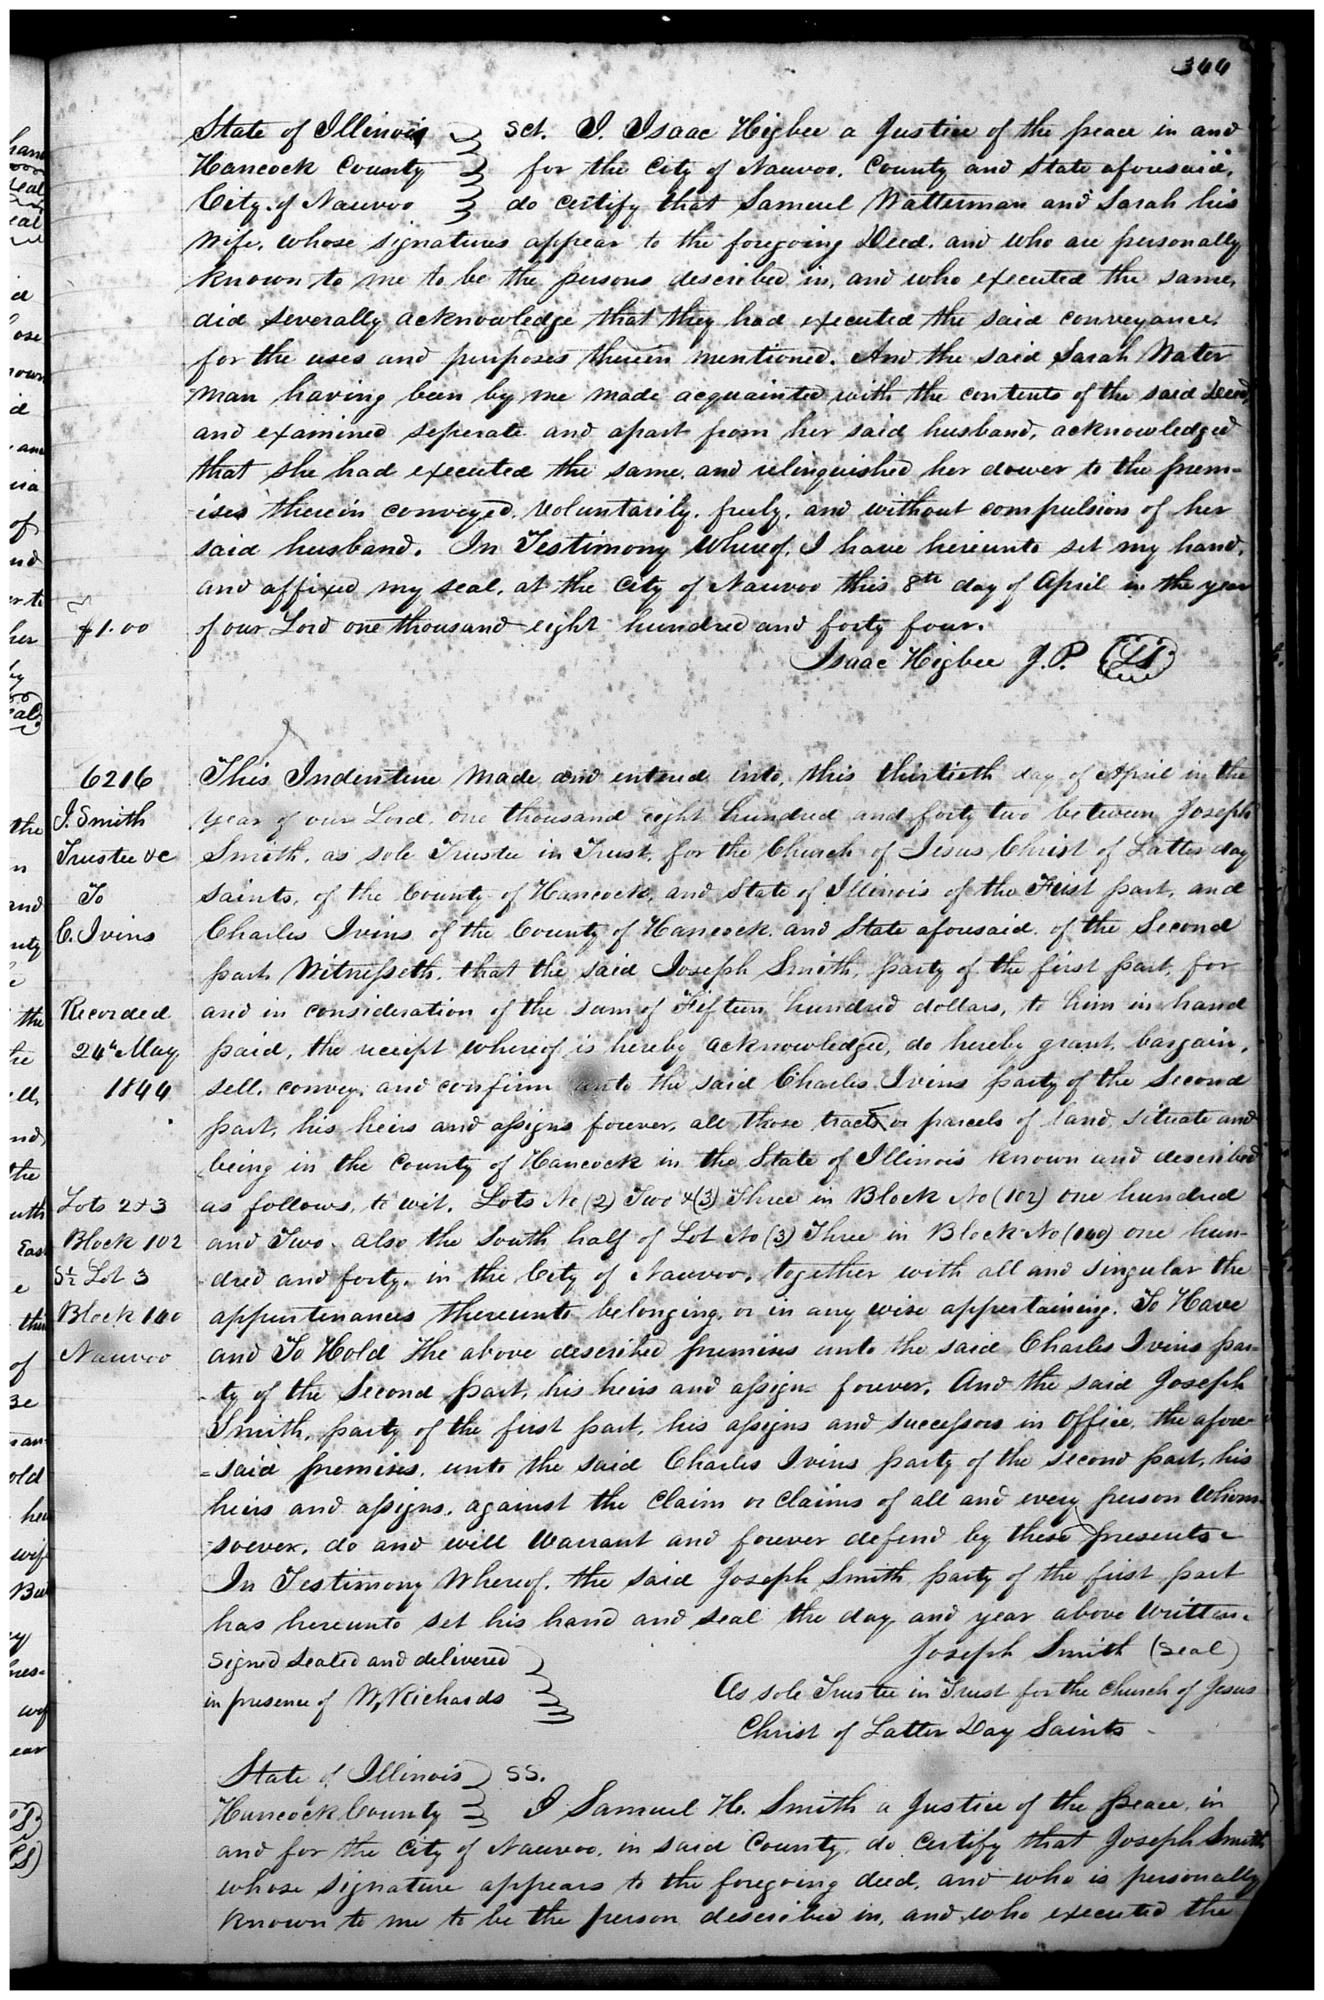 344
State of Illinois } Sct. I. Isaac Higbee a Justice of the peace in and
Hancock County } for the City of Nauvoo. County and State aforesaid,
City of Nauvoo } do certify that Samuel Watterman and Sarah his
Wife, whose signatures appear to the foregoing Deed. and who are personally
known to me to be the persons described in, and who executed the same,
did severally acknowledge that they had executed the said conveyance.
for the uses and purposes therein mentioned. And the said Sarah Water
man having been by me made acquainted with the contents of the said Deed,
and examined seperate and apart from her said husband, acknowledged
that she had executed the same. and relinquished her dower to the prem-
-ises therein conveyed. voluntarily. freely. and without compulsion of her
said husband. In Testimony Whereof, I have hereunto set my hand,
and affixed my seal, at the City of Nauvoo this 8th day of April in the year
$1.00 of our Lord one thousand eight hundred and forty four.
Isaac Higbee J.P. (LS)
6216
J. Smith
Trustee &c
To
C. Ivins
Recorded
24th May
1844
Lots 2 & 3
Block 102
S½ Lot 3
Block 140
Nauvoo
This Indenture Made and entered into, this thirtieth day of April in the
year of our Lord. one thousand eight hundred and forty two between Joseph
Smith, as sole Trustee in Trust, for the Church of Jesus Christ of Latter day
Saints, of the County of Hancock, and State of Illinois of the First part, and
Charles Ivins of the County of Hancock. and State aforesaid. of the Second
part. Witnesseth. that the said Joseph Smith, party of the first part, for
and in consideration of the sum of Fifteen hundred dollars, to him in hand
paid, the receipt whereof is hereby acknowledged, do hereby grant, bargain,
sell. convey. and confirm unto the said Charles Ivins party of the Second
part, his heirs and assigns forever, all those tracts or parcels of land, situate and
being in the County of Hancock in the State of Illinois known and described
as follows, to wit. Lots No (2) Two & (3) Three in Block No (102) one hundred
and Two. also the South half of Lot No (3) Three in Block No (140) one hun-
-dred and forty, in the City of Nauvoo, together with all and singular the
appurtenances thereunto belonging, or in any wise appertaining. To Have
and To Hold The above described premises unto the said Charles Ivins par-
-ty of the Second part, his heirs and assigns forever. And the said Joseph
Smith, party of the first part, his assigns and successors in Office, the afore-
=said premises, unto the said Charles Ivins party of the second part, his
heirs and assigns, against the Claim or Claims of all and every person Whom-
soever, do and will Warrant and forever defend by these presents-
In Testimony Whereof, the said Joseph Smith party of the first part
has hereunto set his hand and seal the day and year above Written.
Joseph Smith (Seal)
Signed Sealed and delivered }
in presence of W. Richards }
As sole Trustee in Trust for the Church of Jesus
Christ of Latter Day Saints -
State of Illinois } SS.
Hancock County } I Samuel H. Smith a Justice of the Peace, in
and for the City of Nauvoo, in said County, do certify that Joseph Smith
whose signature appears to the foregoing deed, and who is personally
known to me to be the person described in, and who executed the